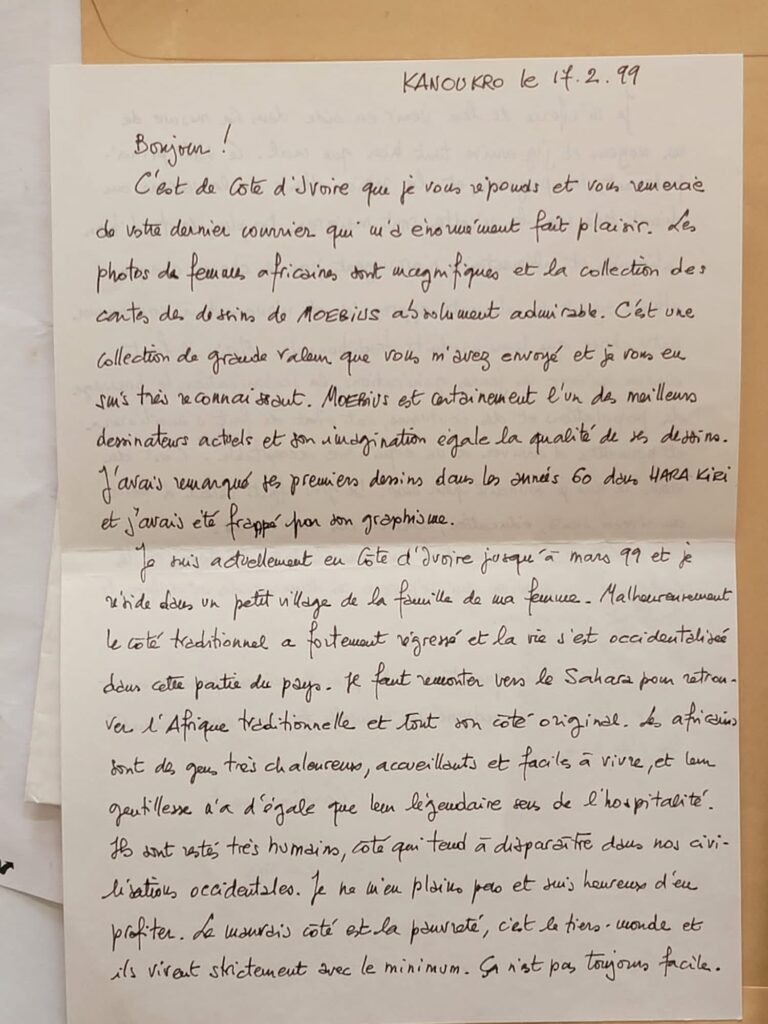 KANOUKRO le 17.2.99
Bonjour !
C'est de Côte d'Ivoire que je vous réponds et vous remercie
de votre dernier courrier qui m'a énormément fait plaisir. Les
photos de femmes africaines sont magnifiques et la collection des
cartes des dessins de MOEBIUS absolument admirable. C'est une
collection de grande valeur que vous m'avez envoyé et je vous en
suis très reconnaissant. MOEBIUS est certainement l'un des meilleurs
dessinateurs actuels et son imagination égale la qualité de ses dessins.
J'avais remarqué ses premiers dessins dans les années 60 dans HARA KIRI
et j'avais été frappé par son graphisme.
Je suis actuellement en Côte d'Ivoire jusqu'à mars 99 et je
réside dans un petit village de la famille de ma femme. Malheureusement
le côté traditionnel a fortement régressé et la vie s'est occidentalisée
dans cette partie du pays. Il faut remonter vers le Sahara pour retrou-
ver l'Afrique traditionnelle et tout son côté original. Les africains
sont des gens très chaleureux, accueillants et faciles à vivre, et leur
gentillesse n'a d'égale que leur légendaire sens de l'hospitalité.
Ils sont restés très humains, côté qui tend à disparaître dans nos civi-
lisations occidentales. Je ne m'en plains pas et suis heureux d'en
profiter. Le mauvais côté est la pauvreté, c'est le tiers-monde et
ils vivent strictement avec le minimum. Ça n'est pas toujours facile.